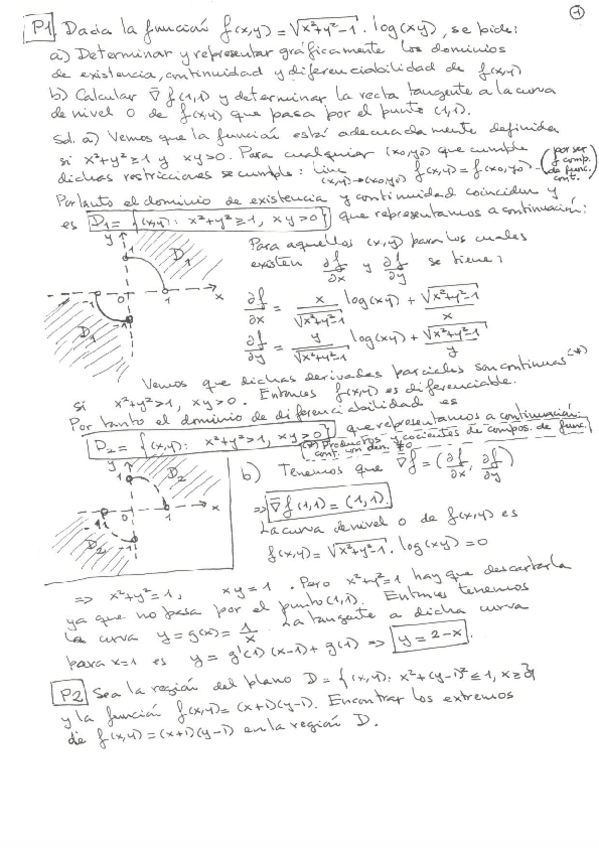 ①
P1 Dada la función f(x,y) = √(x²+y²-1) · log(xy), se pide:
a) Determinar y representar gráficamente los dominios
de existencia, continuidad y diferenciabilidad de f(x,y)
b) Calcular ∇̄f(1,1) y determinar la recta tangente a la curva
de nivel 0 de f(x,y) que pasa por el punto (1,1).
Sol. a) Vemos que la función está adecuadamente definida
si x²+y²≥1 y xy>0. Para cualquier (x₀,y₀) que cumple
dichas restricciones se cumple: lim (x,y)→(x₀,y₀) f(x,y) = f(x₀,y₀) (por ser f comp. de func. cont.)
Por tanto el dominio de existencia y continuidad coinciden y
es D₁ = {(x,y): x²+y²≥1, xy>0} que representamos a continuación:
y
1
D₁
-1
0
1
x
-1
D₁
Para aquellos (x,y) para los cuales
existen ∂f/∂x y ∂f/∂y se tiene:
∂f/∂x = x/√(x²+y²-1) log(xy) + √(x²+y²-1)/x
∂f/∂y = y/√(x²+y²-1) log(xy) + √(x²+y²-1)/y
Vemos que dichas derivadas parciales son continuas (*)
si x²+y²>1, xy>0. Entonces f(x,y) es diferenciable.
Por tanto el dominio de diferenciabilidad es
D₂ = {(x,y): x²+y²>1, xy>0} que representamos a continuación:
(*) Productos y cocientes de compos. de func. cont. con den. ≠0
y
1
D₂
-1
0
1
x
-1
D₂
b) Tenemos que ∇̄f = (∂f/∂x, ∂f/∂y)
⇒ ∇̄f(1,1) = (1,1).
La curva de nivel 0 de f(x,y) es
f(x,y) = √(x²+y²-1) · log(xy) = 0
⇒ x²+y²=1, xy=1. Pero x²+y²=1 hay que descartarla
ya que no pasa por el punto (1,1). Entonces tenemos
la curva y = g(x) = 1/x. La tangente a dicha curva
para x=1 es y = g'(1)(x-1)+g(1) ⇒ y = 2-x.
P2 Sea la región del plano D = {(x,y): x²+(y-1)²≤1, x≥0}
y la función f(x,y) = (x+1)(y-1). Encontrar los extremos
de f(x,y) = (x+1)(y-1) en la región D.